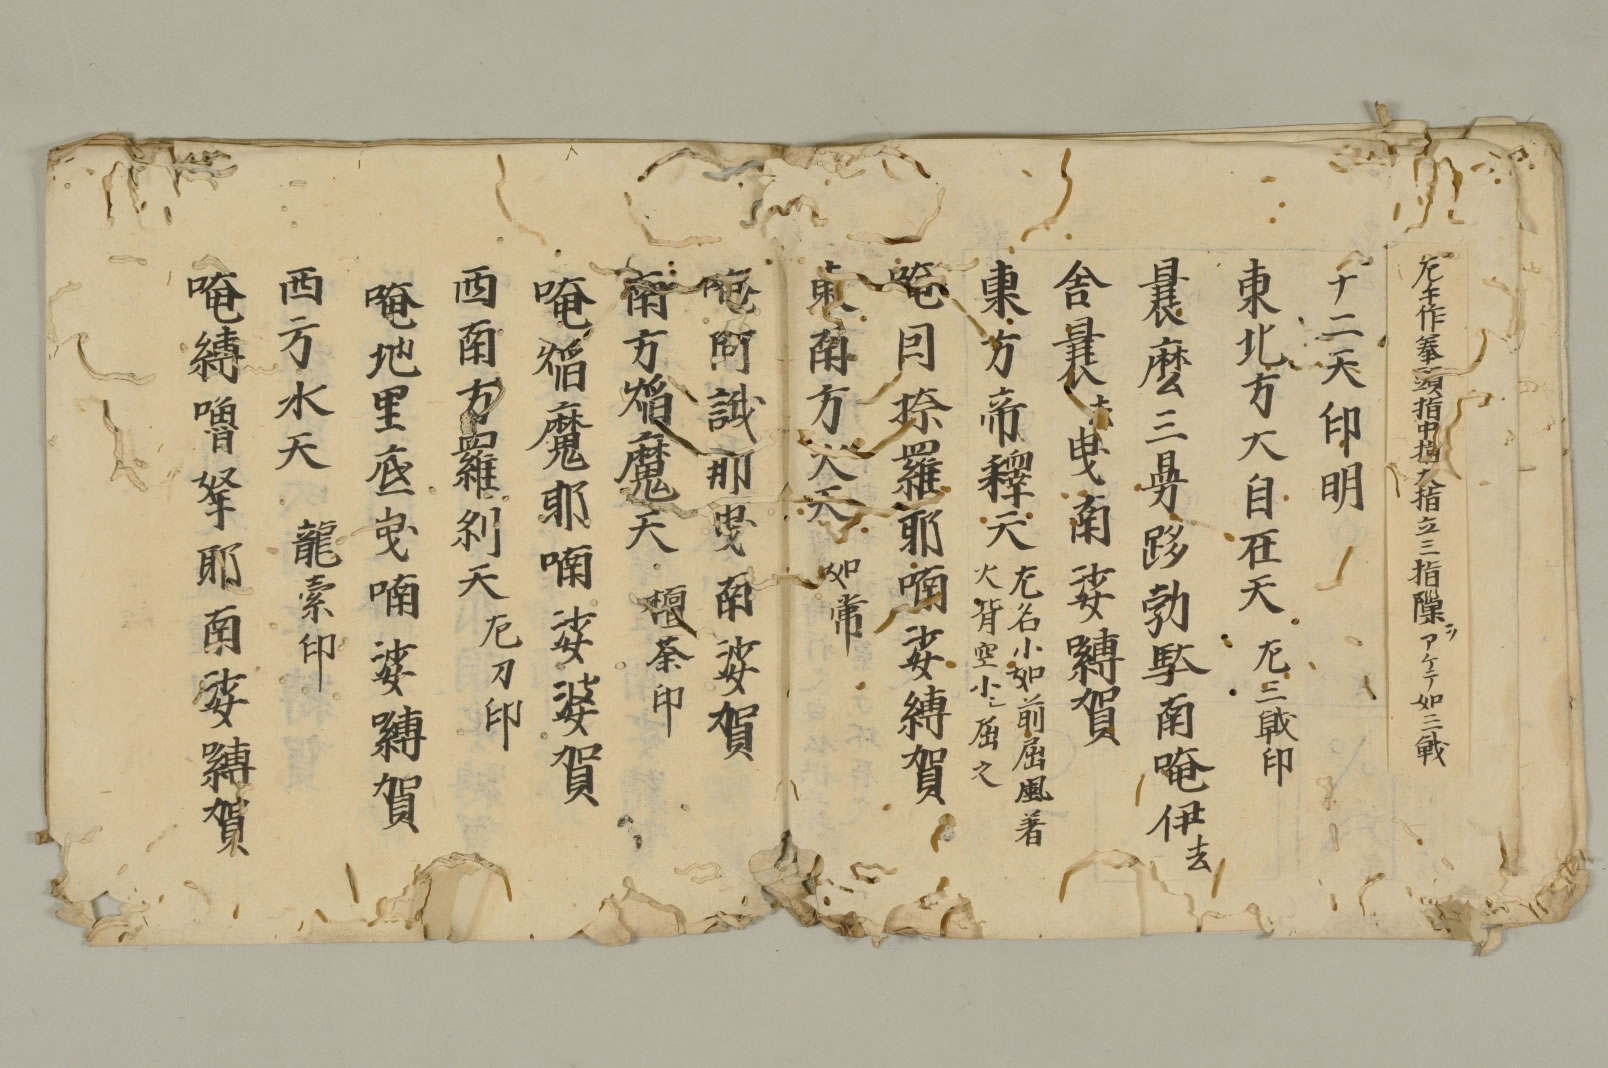 左手作拳頭指中指大指立三指隙ヲアケテ如三戟
十二天印明
東北方大自在天 左三戟印
曩麼三曼跢勃馱南唵伊去
舎曩去曳南娑嚩賀
東方帝釋天 左名小如前屈風著
火背空小亦屈之
唵因捺羅耶喃娑嚩賀
東南方火天 如常
唵阿誐那曳南娑賀
南方焔魔天 檀荼印
唵焔魔耶喃娑婆賀
西南方羅刹天 右刀印
唵地里底曳喃娑嚩賀
西方水天 龍索印
唵嚩嚕拏耶南娑嚩賀